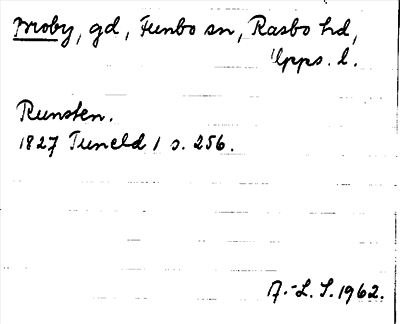 Broby, gd, Funbo sn, Rasbo hd,
Upps. l.
Runsten.
1827 Tuneld 1 s. 256.
A.-L. S. 1962.